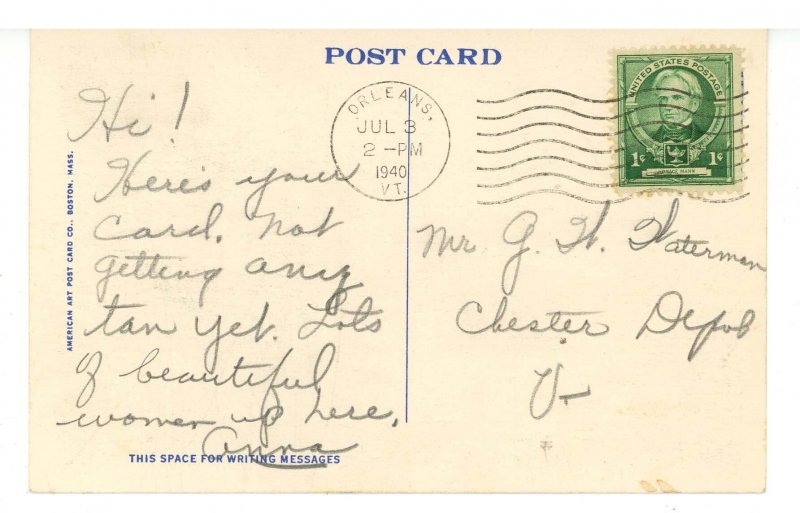 POST CARD
ORLEANS,
JUL 3
2 -PM
1940
VT.
UNITED STATES POSTAGE
1¢ 1¢
HORACE MANN
Hi!
Here's your
card. Not
getting any
tan yet. Lots
of beautiful
women up here.
Anna
Mr. G. H. Waterman
Chester Depot
Vt
AMERICAN ART POST CARD CO., BOSTON, MASS.
THIS SPACE FOR WRITING MESSAGES